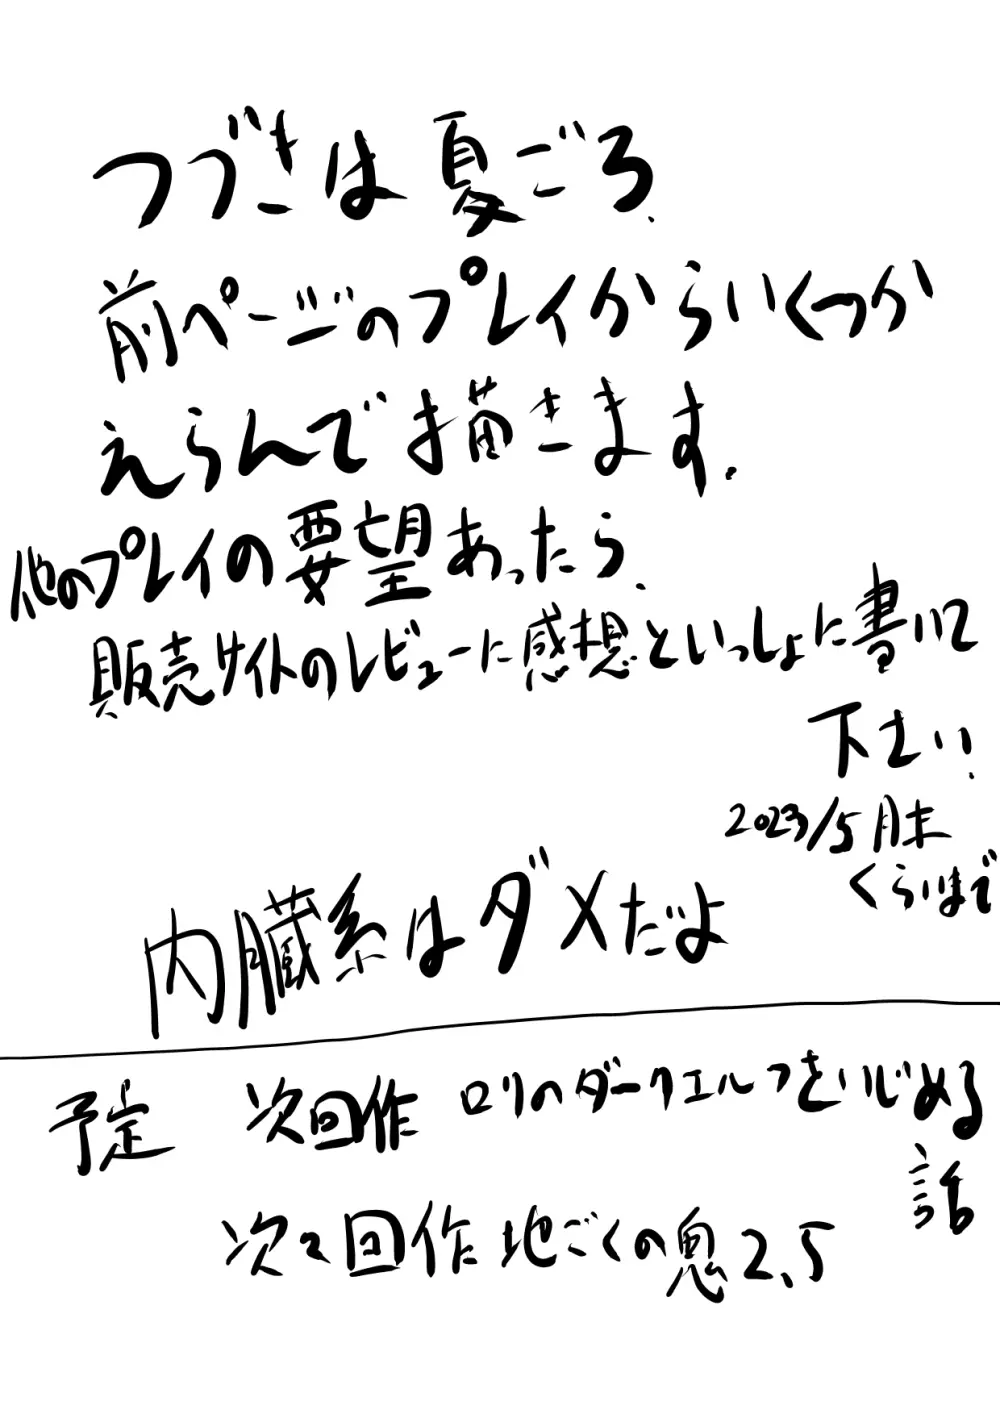 つづきは夏ごろ.
前ページのプレイからいくつか
えらんで描きます.
他のプレイの要望あったら.
販売サイトのレビューに感想といっしょに書いて
下さい.
2023/5月末
くらいまで
内臓系はダメだよ
予定 次回作 ロリのダークエルフをいじめる
話
次々回作 地ごくの鬼2.5